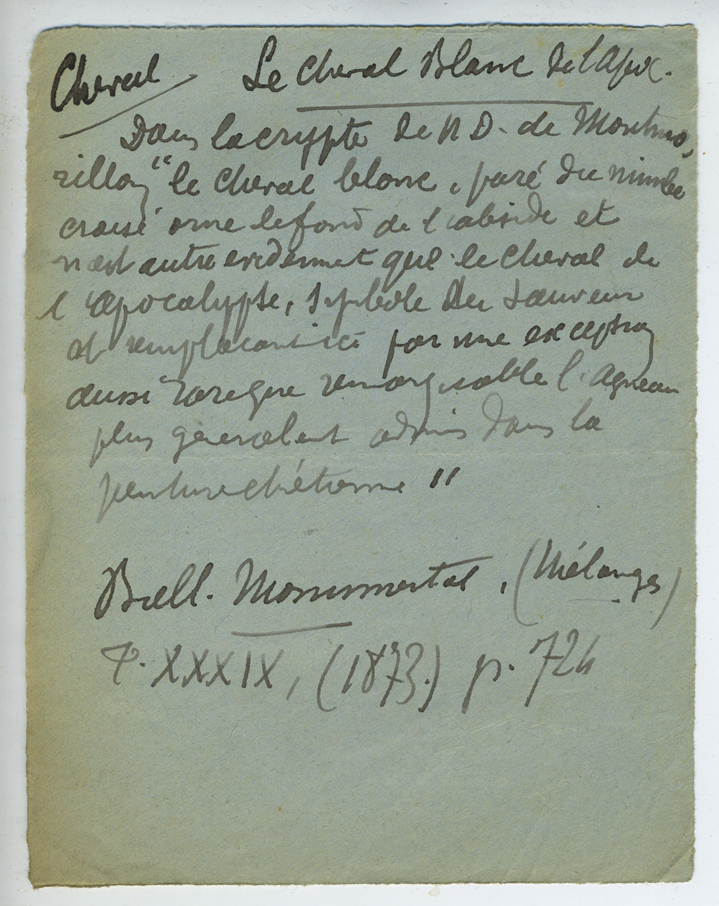 Cheval Le Cheval Blanc de l'Apoc.
Dans la crypte de N D. de Montmo,
rillon " le cheval blanc, paré du nimbe
croisé orne le fond de l'abside et
n'est autre evidemmet que le cheval de
l'apocalypse, symbole du Sauveur
et remplacant ici par une exception
aussi rare que remarquable l'Agneau
plus généralent admis dans la
peinture chrétienne "
Bull. Monumental, (Mélanges)
T. XXXIX, (1873.) p. 724